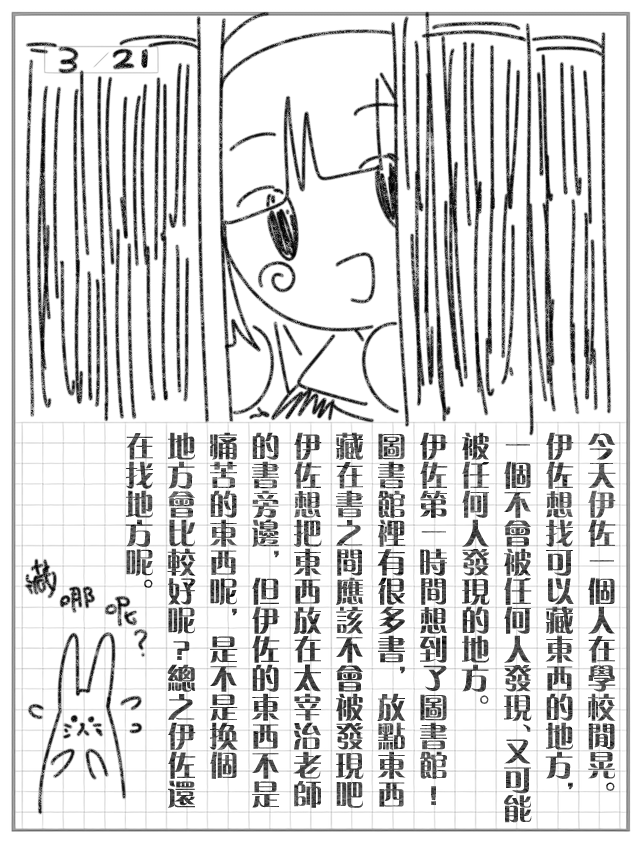 3/21
今天伊佐一個人在學校閒晃。
伊佐想找可以藏東西的地方，
一個不會被任何人發現、又可能
被任何人發現的地方。
伊佐第一時間想到了圖書館！
圖書館裡有很多書，放點東西
藏在書之間應該不會被發現吧
伊佐想把東西放在太宰治老師
的書旁邊，但伊佐的東西不是
痛苦的東西呢，是不是換個
地方會比較好呢？總之伊佐還
在找地方呢。
藏哪呢？